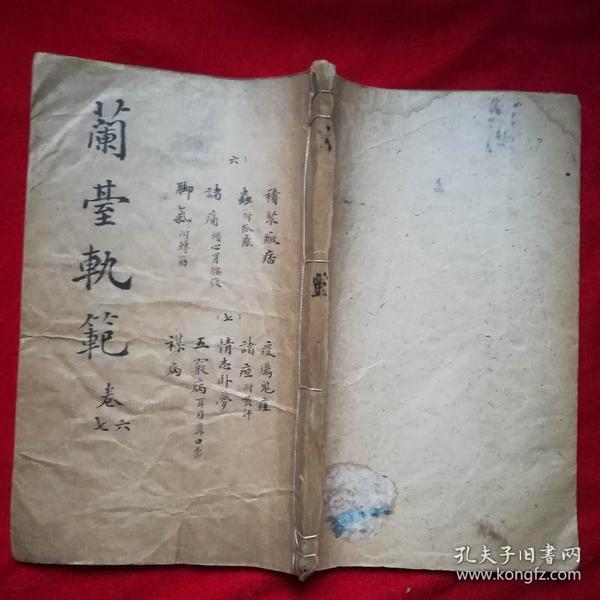 蘭臺軌範 卷六七
（六）
積聚癥痞
蟲 附狐惑
諸痛 頭心胃腰腹
脚氣 附轉筋
（七）
疫厲鬼疰
諸疸 附黃汗
情志卧夢
五竅病 耳目鼻口
襍病
孔夫子旧书网
www.kongfz.com